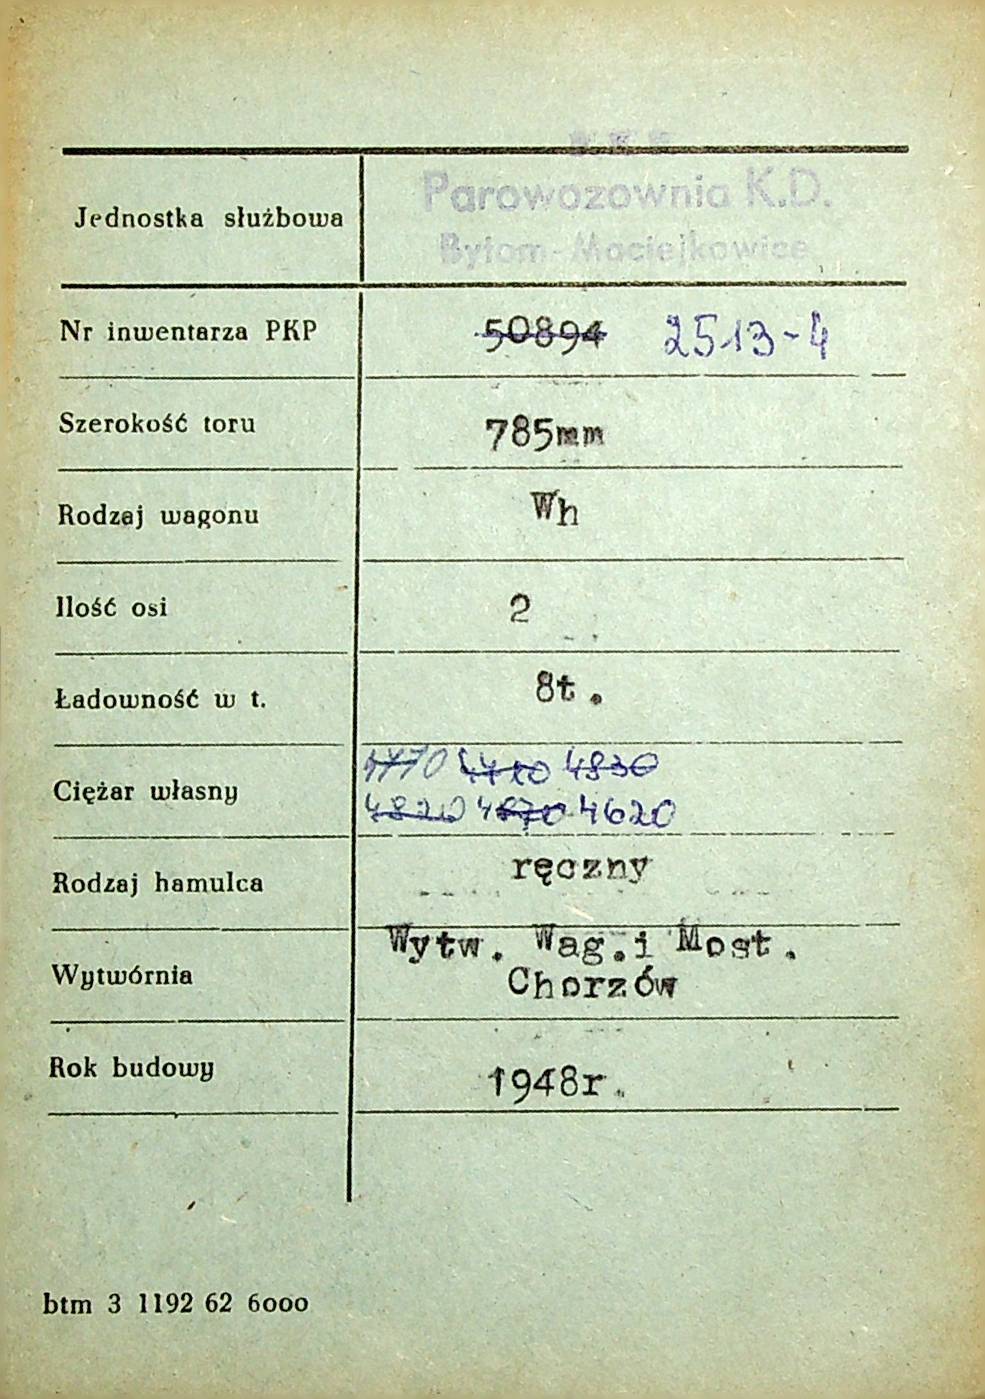 Jednostka służbowa
Parowozownia K.D.
Bytom-Maciejkowice
Nr inwentarza PKP 50894 2513-4
Szerokość toru 785mm
Rodzaj wagonu Wh
Ilość osi 2
Ładowność w t. 8t.
Ciężar własny
4830
4820 4620
Rodzaj hamulca ręczny
Wytwórnia
Wytw. Wag.i Most.
Chorzów
Rok budowy 1948r.
btm 3 1192 62 6000